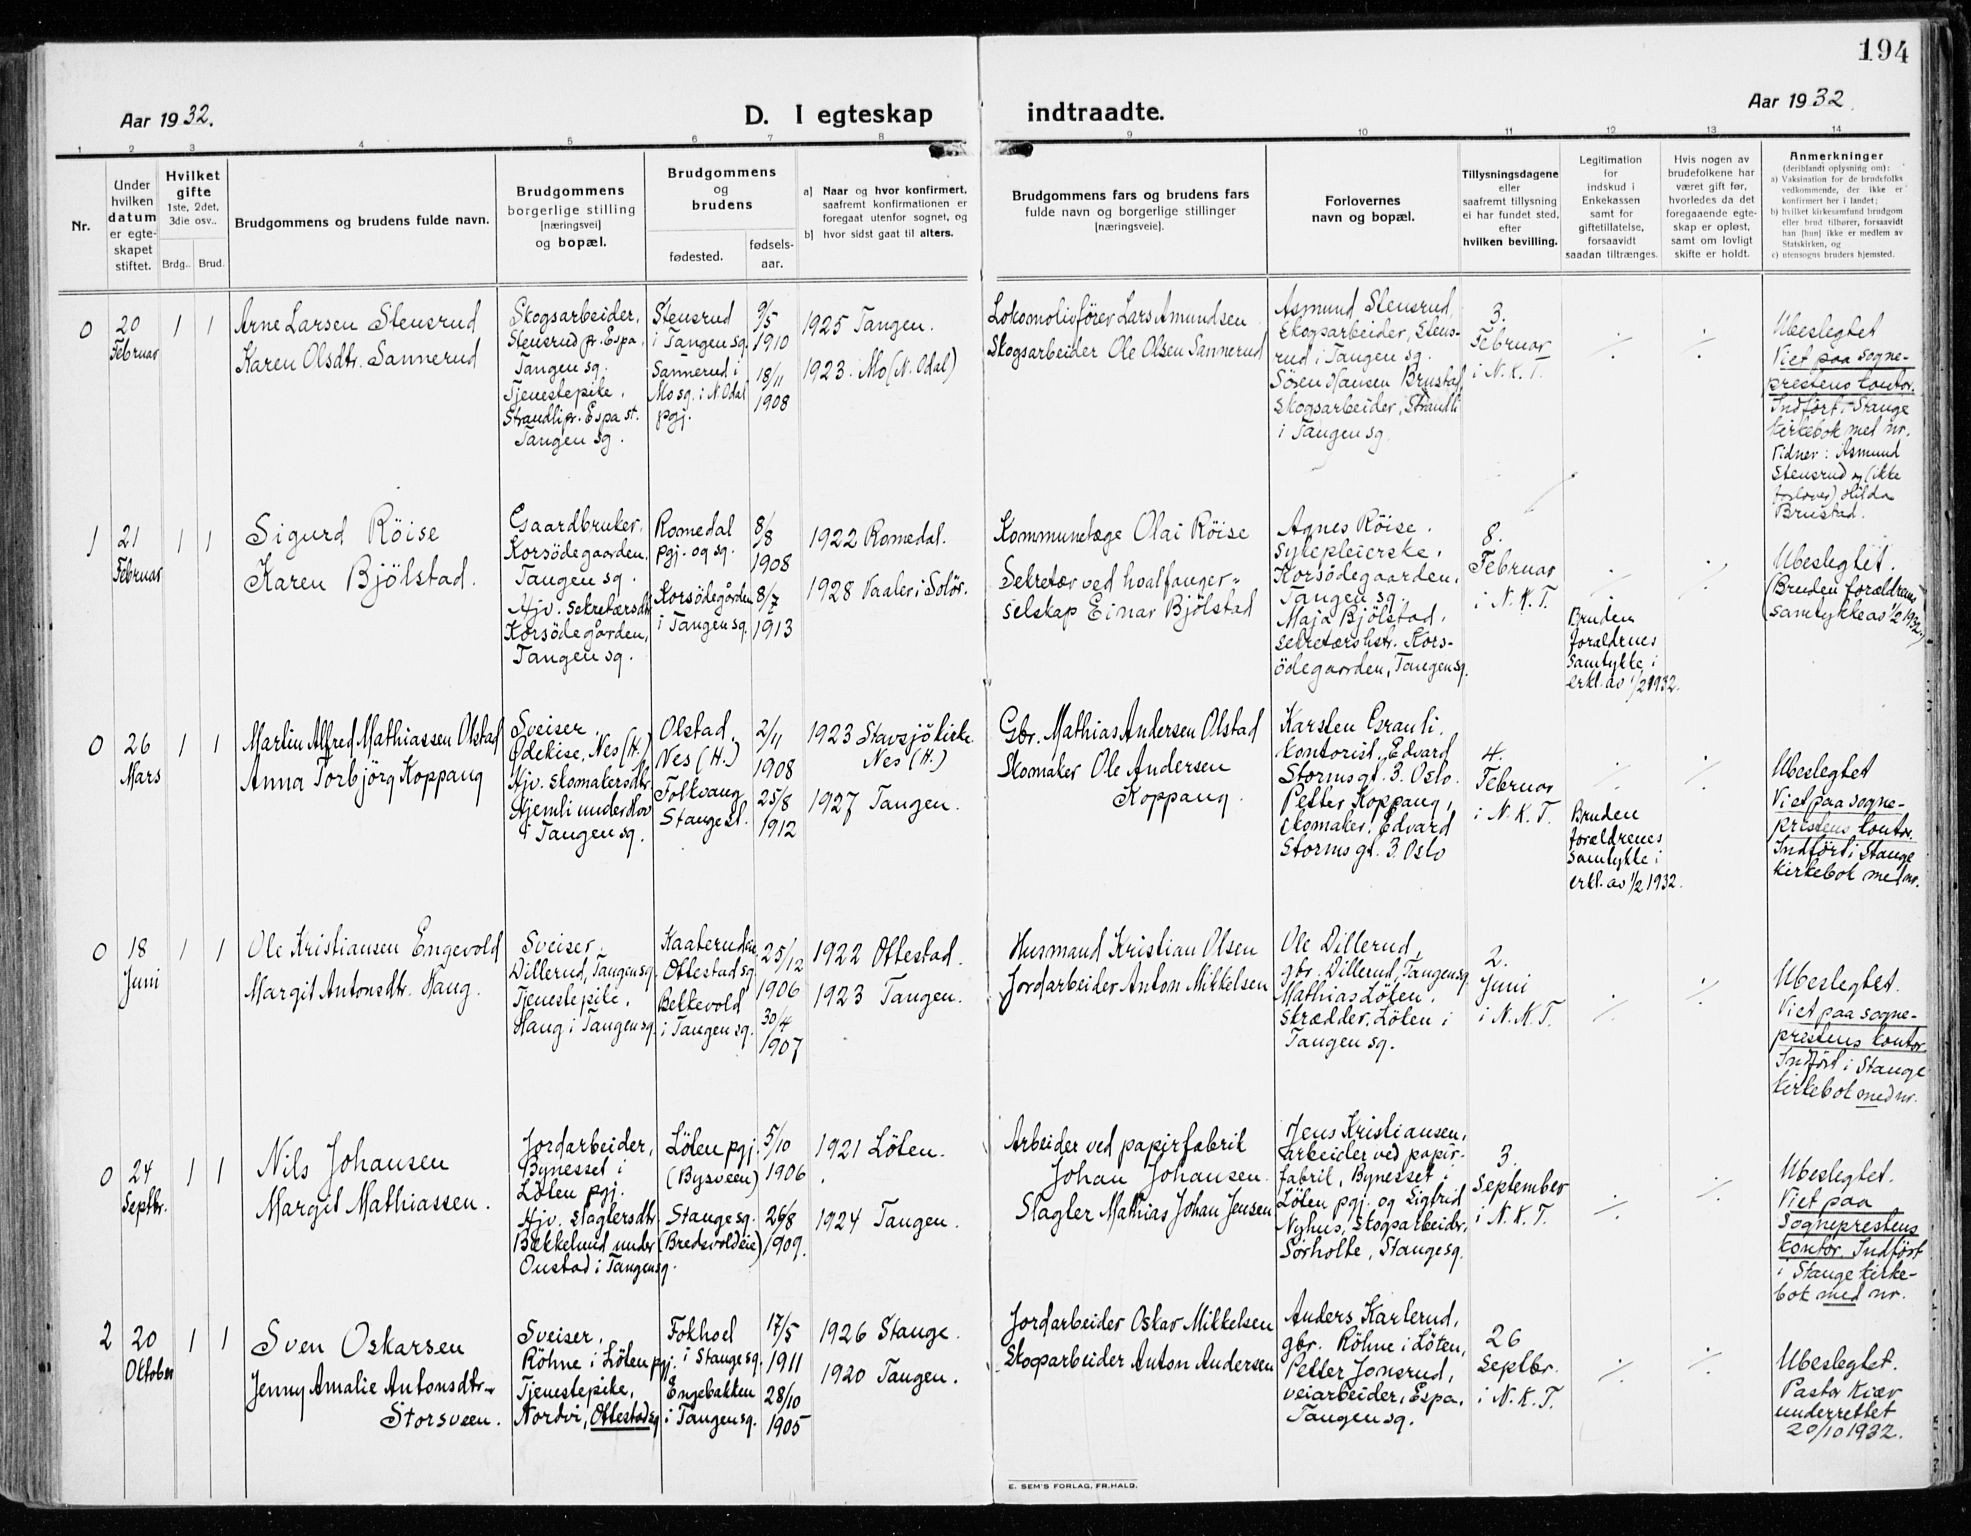 194
Aar 1932.
D. I egteskap indtraadte.
Aar 1932.
1 2 3 4 5 6 7 8 9 10 11 12 13 14
Nr.
Under
hvilken
datum
er egte-
skapet
stiftet.
Hvilket
gifte
1ste, 2det,
3die osv..
Brdg.. Brud.
Brudgommens og brudens fulde navn.
Brudgommens
borgerlige stilling
[næringsvei]
og bopæl.
Brudgommens
og
brudens
fødested.
fødsels-
aar.
a] Naar og hvor konfirmert,
saafremt konfirmationen er
foregaat utenfor sognet, og
b] hvor sidst gaat til alters.
Brudgommens fars og brudens fars
fulde navn og borgerlige stillinger
[næringsveie].
Forlovernes
navn og bopæl.
Tillysningsdagene
eller
saafremt tillysning
ei har fundet sted,
efter
hvilken bevilling.
Legitimation
for
indskud i
Enkekassen
samt for
giftetillatelse,
forsaavidt
saadan tiltrænges.
Hvis nogen av
brudefolkene har
været gift før,
hvorledes da det
foregaaende egte-
skap er opløst,
samt om lovligt
skifte er holdt.
Anmerkninger
(deriblandt oplysning om):
a) Vaksination for de brudefolks
vedkommende, der ikke er
konfirmert her i landet;
b) hvilket kirkesamfund brudgom
eller brud tilhører, forsaavidt
han [hun] ikke er medlem av
Statskirken, og
c) utensogns bruders hjemsted.
0
20
Februar
1 1
Arne Larsen Stensrud
Karen Olsdtr. Sannerud
Skogsarbeider,
Stensrud pr. Espa,
Tangen sg.
Tjenestepike,
Strandli pr. Espa st.
Tangen sg.
Stensrud
i Tangen sg.
Sannerud i
Mo sg. i N. Odal
pgj.
9/5
1910
18/11
1908
1925 Tangen.
1923. Mo (N. Odal)
Lokomotivförer Lars Amundsen
Skogsarbeider Ole Olsen Sannerud
Asmund Stensrud,
skogsarbeider, Stens-
rud i Tangen sg.
Sören Hansen Brustad,
skogsarbeider, Strandli
i Tangen sg.
3.
Februar
i N. K. T.
./. ./.
Ubeslegtet
Viet paa sogne-
prestens kontor.
Indfört i Stange
kirkebok med nr.
Vidner: Asmund
Stensrud og (ikke
forlover) Hilda
Brustad.
1
21
Februar
1 1
Sigurd Röise
Karen Bjölstad.
Gaardbruker,
Korsödegaarden,
Tangen sg.
Hjv. sekretærsdtr
Korsödegården,
Tangen sg.
Romedal
pgj. og sg.
Korsödegården
i Tangen sg.
8/8
1908
8/7
1913
1922 Romedal.
1928 Vaaler i Solör.
Kommunelæge Olai Röise
Sekretær ved hvalfanger-
selskap Einar Bjölstad
Agnes Röise.
sykepleierske,
Korsödegaarden,
Tangen sg.
Maja Bjölstad,
sekretærshstr. Kors-
ödegaarden, Tangen sg.
8.
Februar
i N. K. T.
./.
Bruden
forældrenes
samtykke i
erkl. av 1/2 1932.
./.
Ubeslegtet.
(Bruden forældrenes
samtykke av 1/2 1932.)
0
26
Mars
1 1
Martin Alfred Mathiassen Olstad
Anna Torbjörg Koppang
Sveiser,
Ødekise, Nes (H.)
Hjv. skomakersdtr.
Hjemli under Hov
i Tangen sg.
Olstad,
Nes (H.)
Folkvang
Stange st.
2/11
1908
25/8
1912
1923 Stavsjö kirke
Nes (H.)
1927 Tangen.
Gbr. Mathias Andersen Olstad
Skomaker Ole Andersen
Koppang.
Karsten Granli,
kontorist, Edvard
Storms gt. 3. Oslo.
Petter Koppang,
skomaker. Edvard
Storms gt. 3. Oslo
4.
Februar
i N. K. T.
./.
Bruden
forældrenes
samtykke i
erkl. av 1/2 1932.
./.
Ubeslegtet
Viet paa sogne-
prestens kontor.
Indfört i Stange
kirkebok med nr.
0
18
Juni
1 1
Ole Kristiansen Engevold
Margit Antonsdtr. Haug.
Sveiser.
Dillerud, Tangen sg.
Tjenestepike,
Haug i Tangen sg.
Kaateruden
Ottestad sg.
Bekkevold
i Tangen sg.
25/12
1906
30/4
1907
1922 Ottestad.
1923 Tangen.
Husmand Kristian Olsen
Jordarbeider Anton Mikkelsen
Ole Dillerud,
gbr. Dillerud, Tangen sg.
Mathias Löten,
skrædder. Löten i
Tangen sg.
2.
Juni
i N. K. T.
./. ./.
Ubeslegtet.
Viet paa sogne-
prestens kontor.
Indfört i Stange
kirkebok med nr.
0
24
Septbr.
1 1
Nils Johansen
Margit Mathiassen.
Jordarbeider,
Bynesset i
Löten pgj.
Hjv. slagtersdtr.
Bækkelund under
Oustad i Tangen sg.
Löten pgj.
(Bysveen)
Stange sg.
(Bredvoldeie)
5/10
1906
26/8
1909.
1921 Löten.
1924 Tangen.
Arbeider ved papirfabrik
Johan Johansen
Slagter Mathias Johan Jensen
Jens Kristiansen,
arbeider ved papir-
fabrik, Bynesset i
Löten pgj. og Sigfrid
Nyhus, skogsarbeider,
Sörholte, Stange sg.
3.
September
i N. K. T.
./. ./.
Ubeslegtet.
Viet paa
Sogneprestens
kontor. Indfört
i Stange kirke-
bok med nr.
2
20
Oktober
1 1
Sven Oskarsen
Jenny Amalie Antonsdtr.
Storsveen.
Sveiser,
Röhne i Löten pgj.
Tjenestepike,
Nordvi, Ottestad sg.
Fokhoel
i Stange sg.
Engebakken
i Tangen sg.
17/5
1911
28/10
1905
1926 Stange.
1920 Tangen.
Jordarbeider Oskar Mikkelsen
Skogsarbeider Anton Andersen
Anders Karlerud,
gbr. Röhne i Löten,
Petter Jonsrud,
veiarbeider, Espa,
Tangen sg.
26
Septbr.
i N. K. T.
./. ./.
Ubeslegtet.
Pastor Kiær
underrettet
20/10 1932.
E. SEM'S FORLAG, FR.HALD.